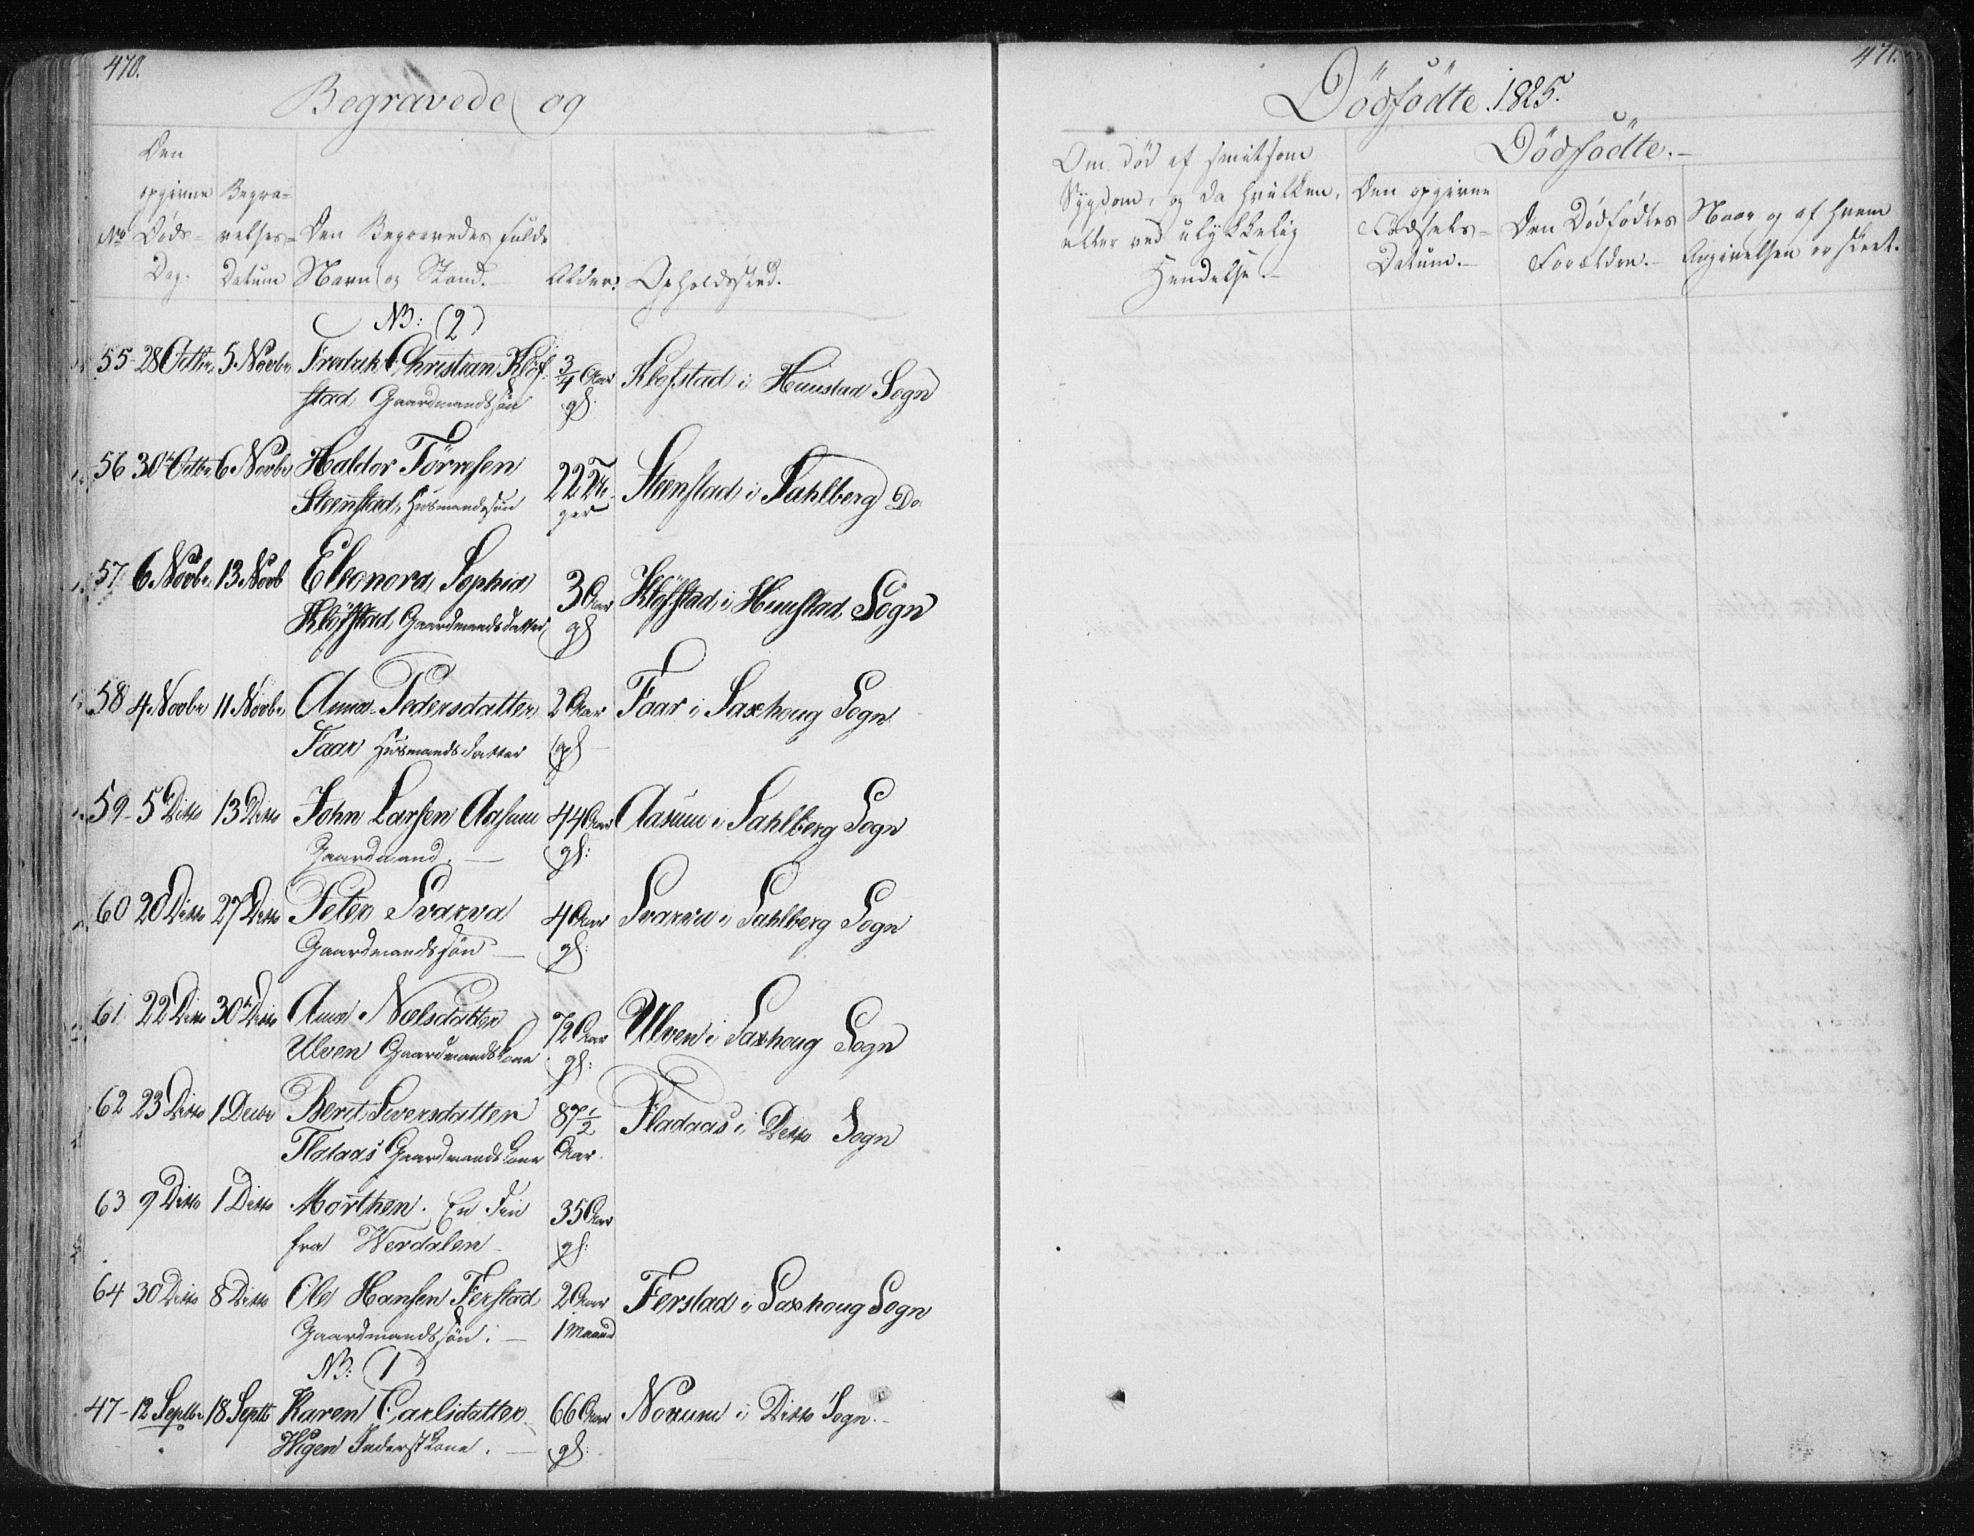 470.
Begravede og
Den
opgivne Begra-
No Døds- velses- Den Begravedes fulde
Dag. Datum Navn og Stand. Alder. Opholdssted.
NB: (2)
55 - 28 Octbr 5 Novbr Fredrik Christian Kløf- 3/4 Aar Klofstad i Huustad Sogn
stad Gaardmandssøn gl.
56 30te Octbr 6 Novbr Haldor Törresen 22 Steenstad i Sahlberg Do
Steenstad, Huusmandssøn ger
57 6 Novbr 13 Novb Eleonora Sophia 3 Aar Kløfstad i Huustad Sogn
Kløfstad, Gaardmandsdatter gl
58 4 Novbr 11 Novbr Anna Pedersdatter 2 Aar Faar i Saxhoug Sogn
Faar Huusmandsdatter gl
59 - 5 Ditto 13 Ditto John Larsen Aasum 44 Aar Aasum i Sahlberg Sogn
Gaardmand. gl:
60 20 Ditto 27 Ditto Peter Svarva 4 Aar Svarva i Sahlberg Sogn
Gaardmandssøn gl:
61 22 Ditto 30te Ditto Anna Nielsdatter 72 Aar Ulven i Saxhoug Sogn
Ulven Gaardmandskone gl:
62 23 Ditto 1 Decbr Berit Siversdatter 87 1/2 Fladaas i Ditto Sogn
Fladaas Gaardmandskone Aar.
63 9 Ditto 1 Ditto Morthen. En Fin 35 Aar
fra Werdalen gl:
64 30 Ditto 8 Ditto Ole Hansen Ferstad 2 Aar Ferstad i Saxhoug Sogn
Gaardmandssøn. 1 Maaned
NB: (1)
47 - 12 Septbr 18 Septb Karen Carlsdatter 66 Aar Norum i Ditto Sogn.
kone. gl:
471.
Dödfödte 1825.
Dödfödte.
Om død af smitsom
Sygdom, og da hvilken, Den opgivne
eller ved ulykkelig Fødsels- Den Dödfödtes Naar og af hvem
Hendelse. Datum. Forældre. Angivelsen er skeet.